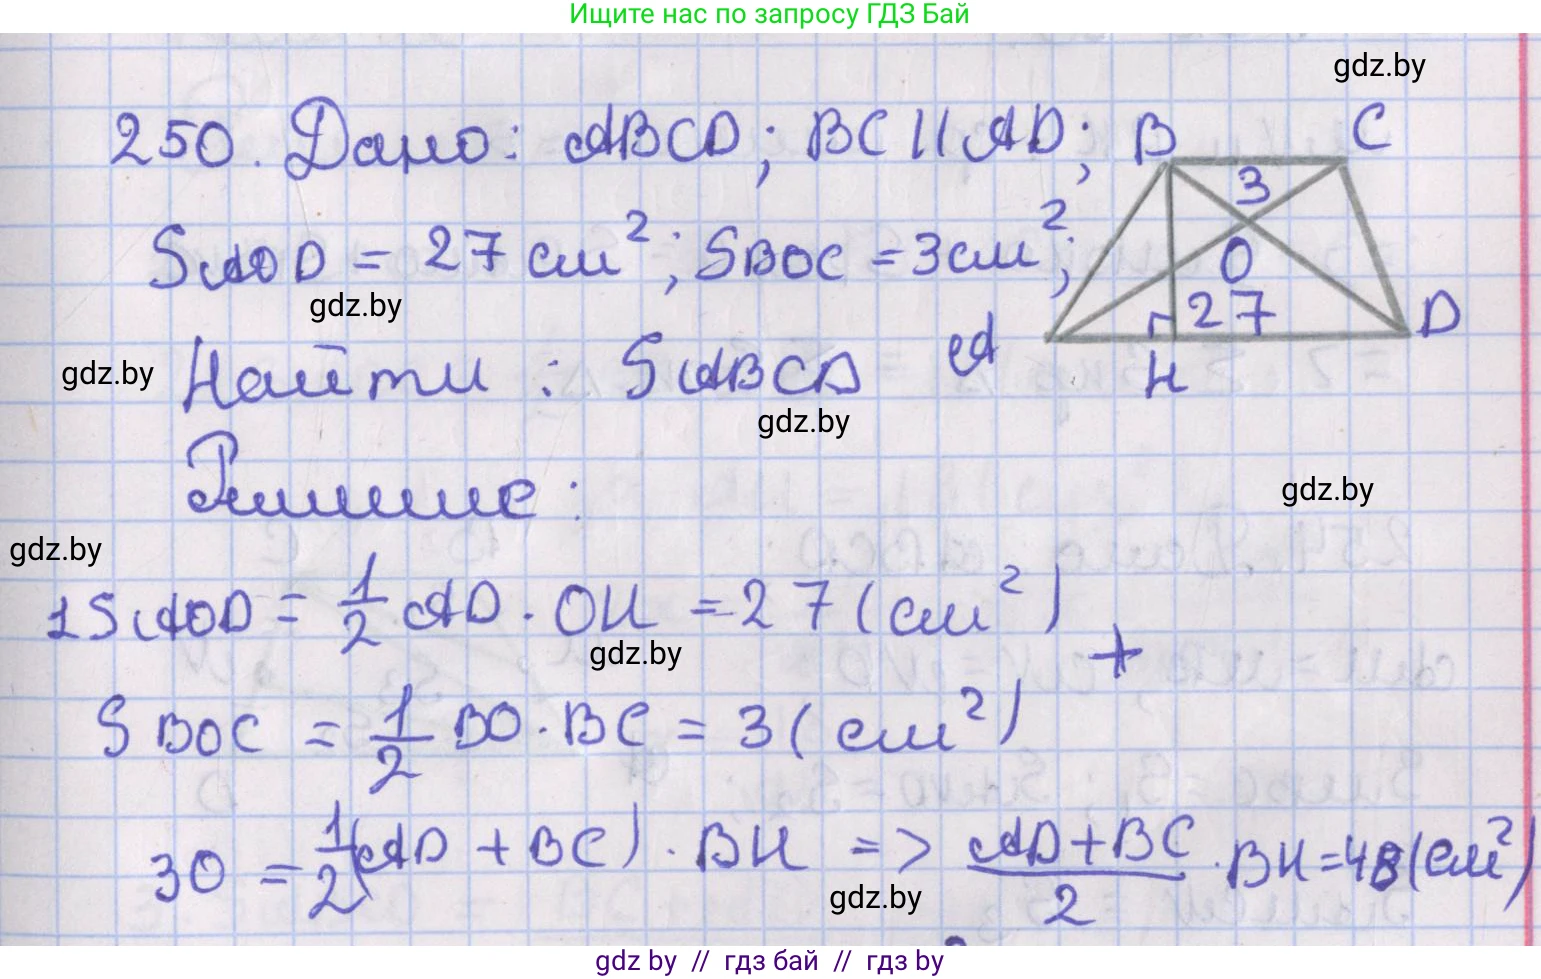 Ищите нас по запросу ГДЗ Бай
gdz.by
250. Дано: ABCD; BC || AD;
B C
3
SAOD = 27 см²; SBOC = 3 см²;
O
gdz.by
27 D
Найти: SABCD
A
H
gdz.by
gdz.by
Решение:
gdz.by
gdz.by
1 SAOD = 1/2 AD · OH = 27 (см²)
gdz.by
+
SBOC = 1/2 BO · BC = 3 (см²)
30 = 1/2 (AD + BC) · BH => AD + BC / 2 · BH = 48 (см²)
gdz.by
gdz by // гдз бай // гдз by